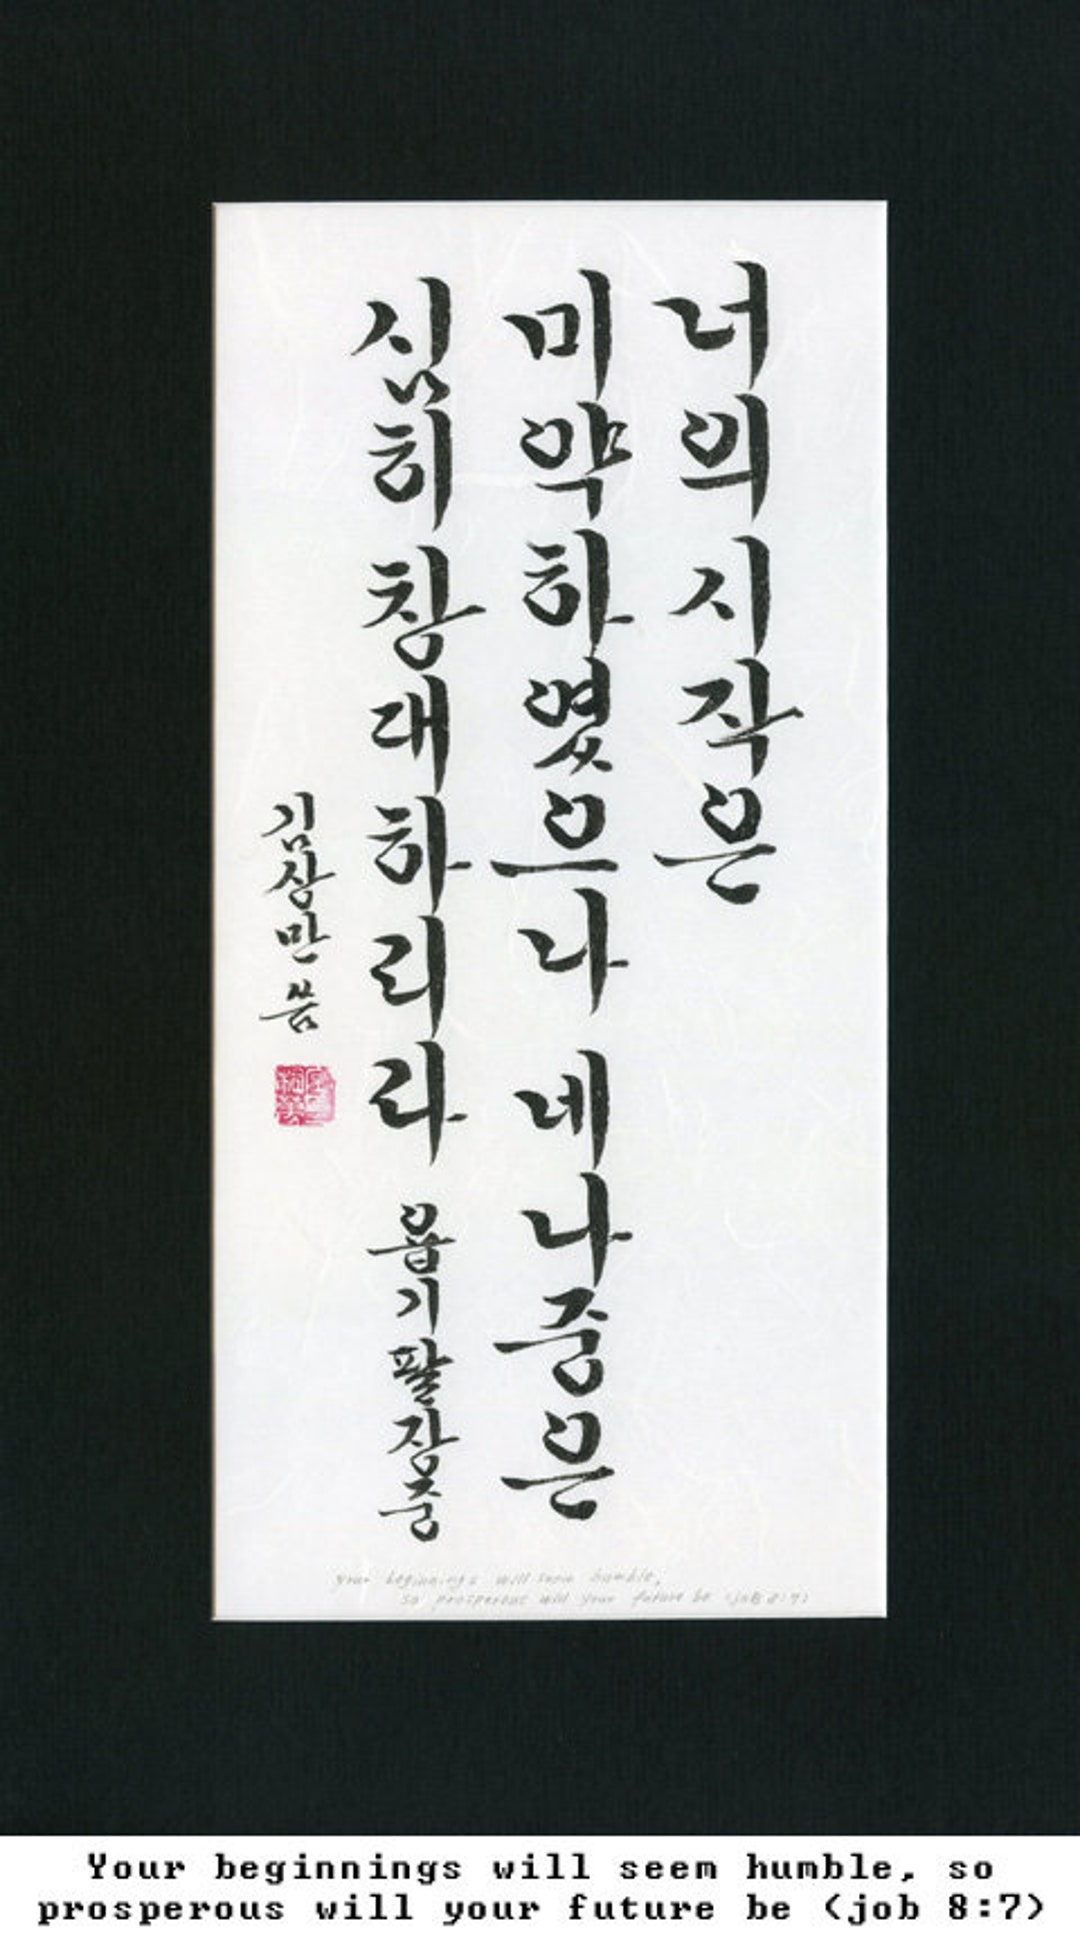 너의 시작은
미약하였으나 네 나중은
심히 창대하리라 욥기 팔장중
김상만 씀
your beginnings will seem humble,
so prosperous will your future be (job 8:7)
Your beginnings will seem humble, so
prosperous will your future be (job 8:7)